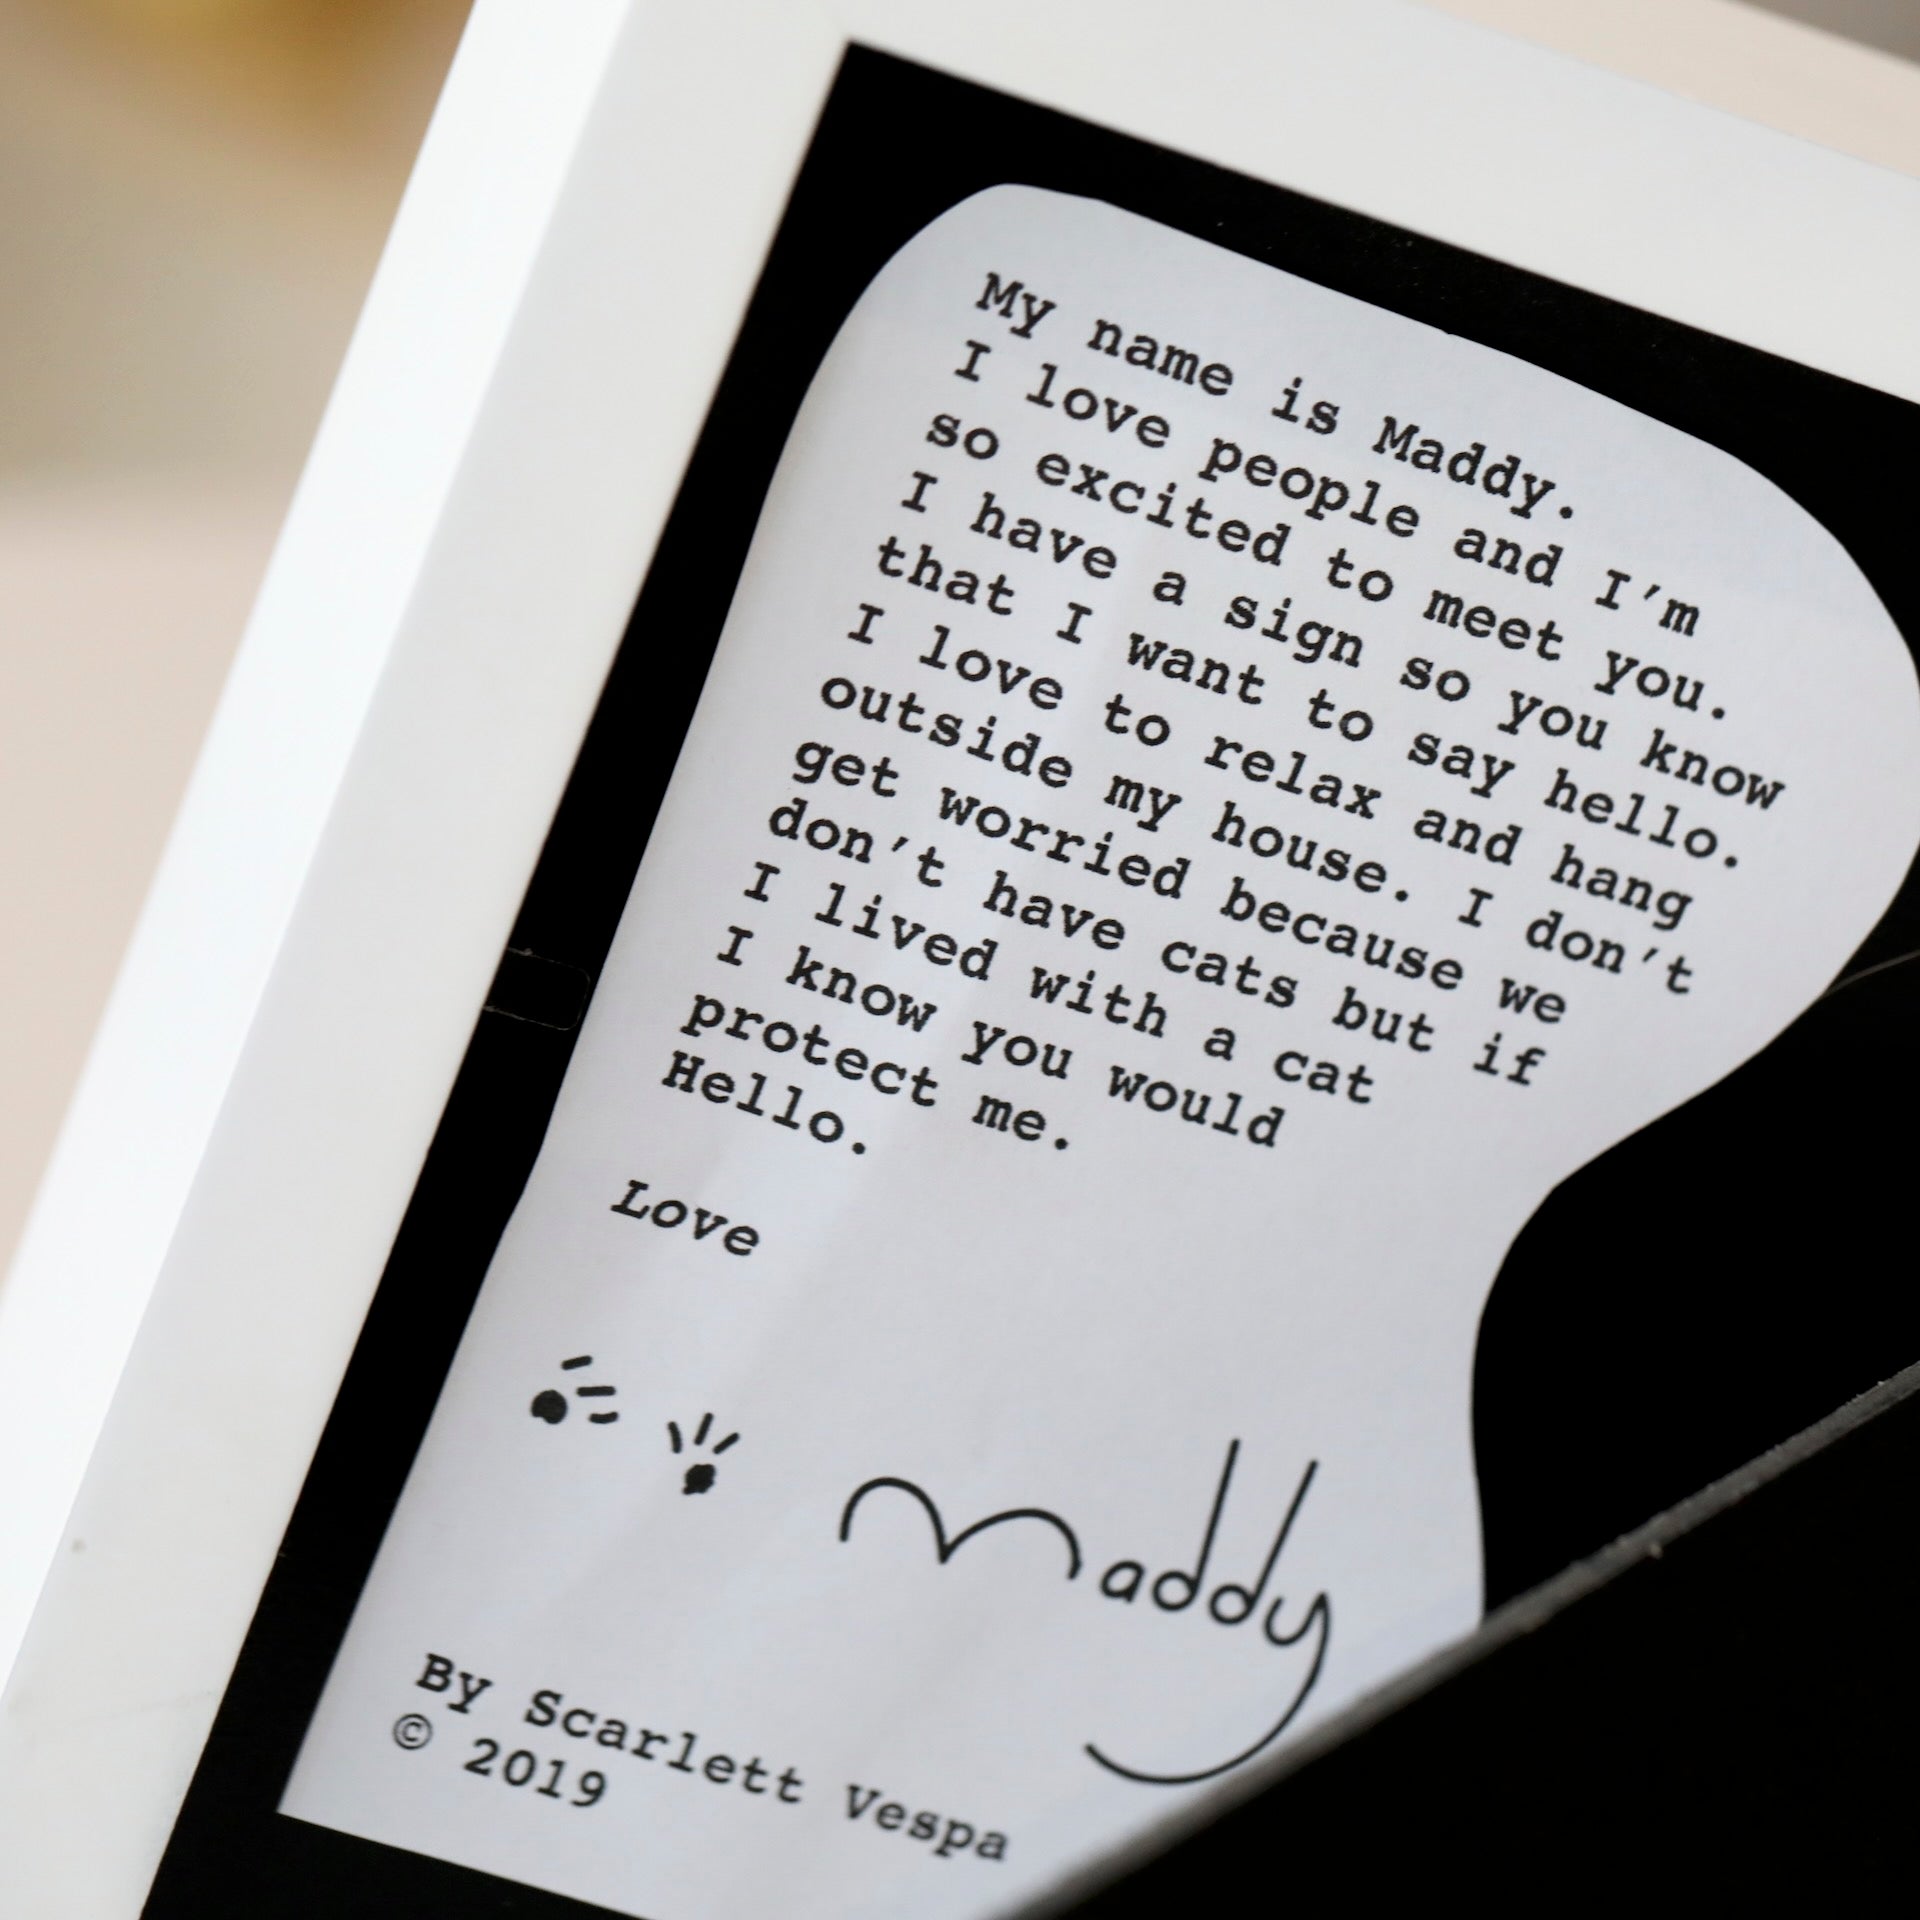 My name is Maddy.
I love people and I'm
so excited to meet you.
I have a sign so you know
that I want to say hello.
I love to relax and hang
outside my house. I don't
get worried because we
don't have cats but if
I lived with a cat
I know you would
protect me.
Hello.
Love
Maddy
By Scarlett Vespa
© 2019